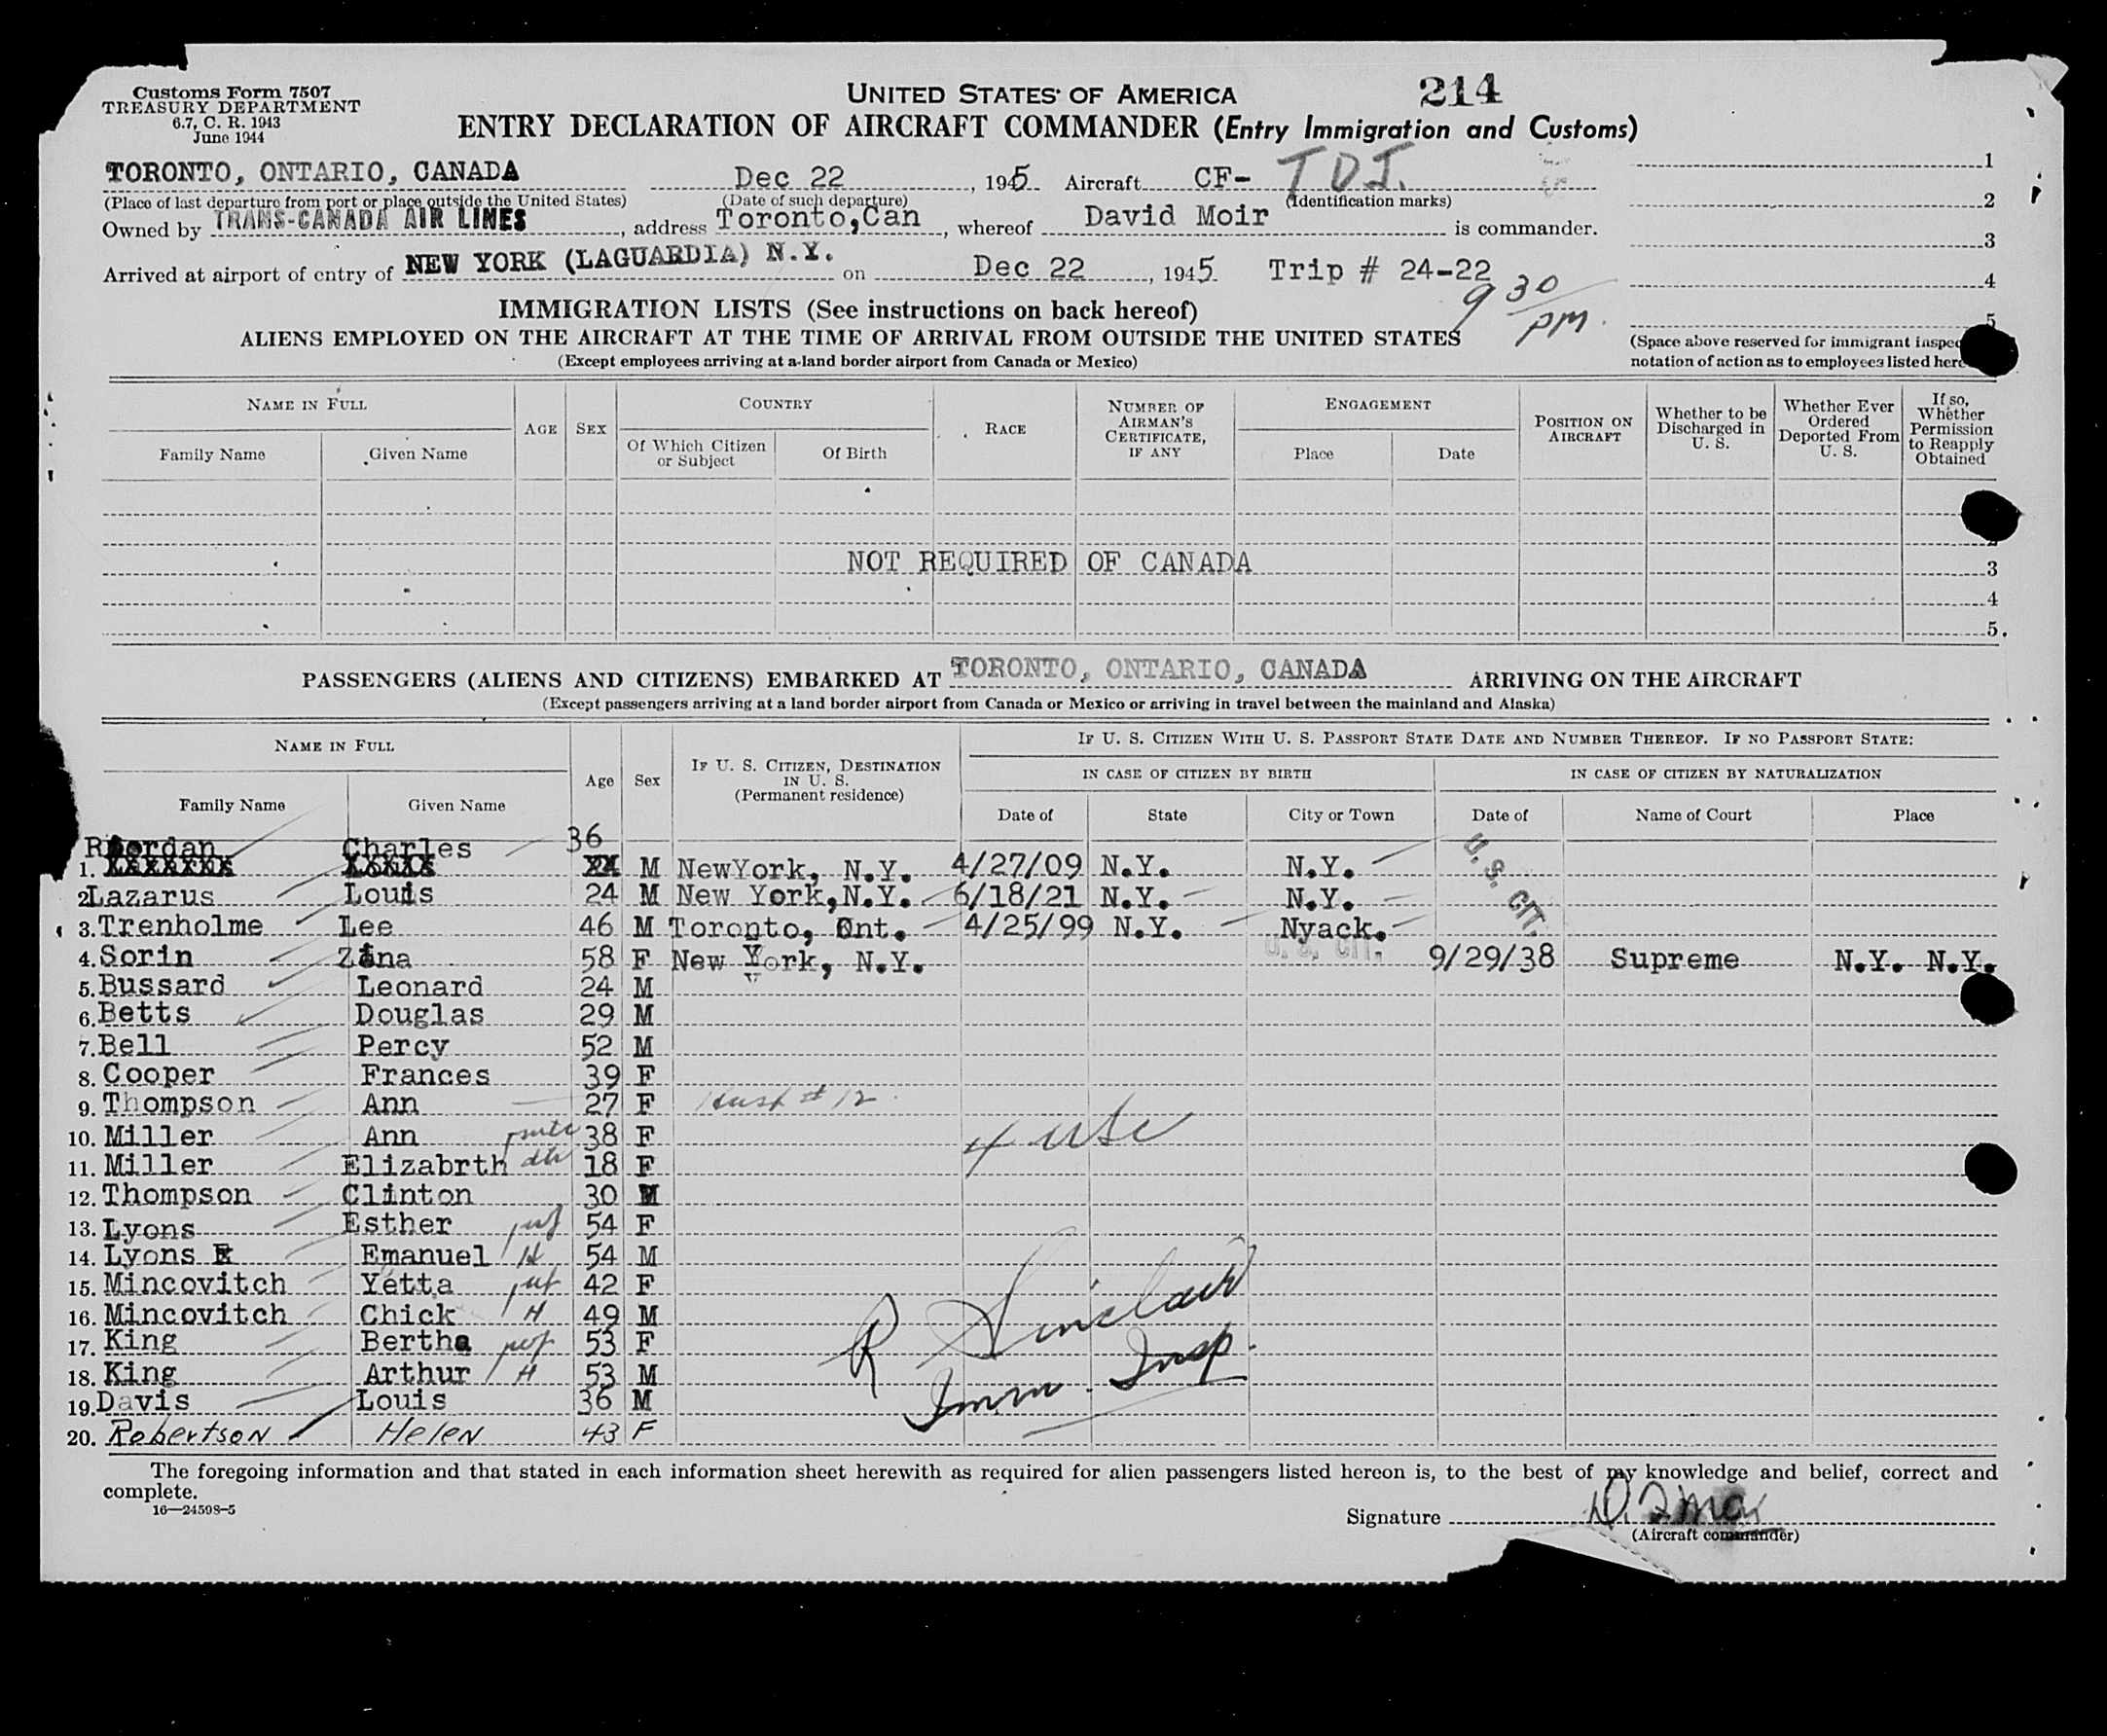 Customs Form 7507
TREASURY DEPARTMENT
6.7, C. R. 1943
June 1944
UNITED STATES OF AMERICA
214
ENTRY DECLARATION OF AIRCRAFT COMMANDER (Entry Immigration and Customs)
TORONTO, ONTARIO, CANADA Dec 22, 1945 Aircraft CF- TDJ. 1
(Place of last departure from port or place outside the United States) (Date of such departure) (Identification marks) 2
Owned by TRANS-CANADA AIR LINES, address Toronto,Can, whereof David Moir is commander. 3
Arrived at airport of entry of NEW YORK (LAGUARDIA) N.Y. on Dec 22, 1945 Trip # 24-22 4
9 30 pm. 5
IMMIGRATION LISTS (See instructions on back hereof)
ALIENS EMPLOYED ON THE AIRCRAFT AT THE TIME OF ARRIVAL FROM OUTSIDE THE UNITED STATES
(Space above reserved for immigrant
(Except employees arriving at a land border airport from Canada or Mexico)
notation of action as to employees listed
NAME IN FULL COUNTRY ENGAGEMENT
Family Name Given Name AGE SEX Of Which Citizen or Subject Of Birth RACE NUMBER OF AIRMAN'S CERTIFICATE, IF ANY Place Date POSITION ON AIRCRAFT Whether to be Discharged in U. S. Whether Ever Ordered Deported From U. S. If so, Whether Permission to Reapply Obtained
NOT REQUIRED OF CANADA 3
4
5.
PASSENGERS (ALIENS AND CITIZENS) EMBARKED AT TORONTO, ONTARIO, CANADA ARRIVING ON THE AIRCRAFT
(Except passengers arriving at a land border airport from Canada or Mexico or arriving in travel between the mainland and Alaska)
NAME IN FULL IF U. S. CITIZEN WITH U. S. PASSPORT STATE DATE AND NUMBER THEREOF. IF NO PASSPORT STATE:
Age Sex IF U. S. CITIZEN, DESTINATION IN U. S. (Permanent residence) IN CASE OF CITIZEN BY BIRTH IN CASE OF CITIZEN BY NATURALIZATION
Family Name Given Name Date of State City or Town Date of Name of Court Place
Charles 36
1. M NewYork, N.Y. 4/27/09 N.Y. N.Y. U. S. CIT.
2 Lazarus Louis 24 M New York,N.Y. 6/18/21 N.Y. N.Y.
3. Trenholme Lee 46 M Toronto, Ont. 4/25/99 N.Y. Nyack.
4. Sorin Zina 58 F New York, N.Y. U. S. CIT. 9/29/38 Supreme N.Y. N.Y.
5. Bussard Leonard 24 M
6. Betts Douglas 29 M
7. Bell Percy 52 M
8. Cooper Frances 39 F
9. Thompson Ann 27 F # 12
10. Miller Ann 38 F 4 USC
11. Miller Elizabrth dtr 18 F
12. Thompson Clinton 30 M
13. Lyons Esther 54 F
14. Lyons Emanuel H 54 M
15. Mincovitch Yetta 42 F
16. Mincovitch Chick H 49 M
17. King Bertha 53 F
18. King Arthur H 53 M
19. Davis Louis 36 M
20. Robertson Helen 43 F
R Sinclair
Imm. Insp.
The foregoing information and that stated in each information sheet herewith as required for alien passengers listed hereon is, to the best of my knowledge and belief, correct and
complete.
16—24598-5
Signature
(Aircraft commander)